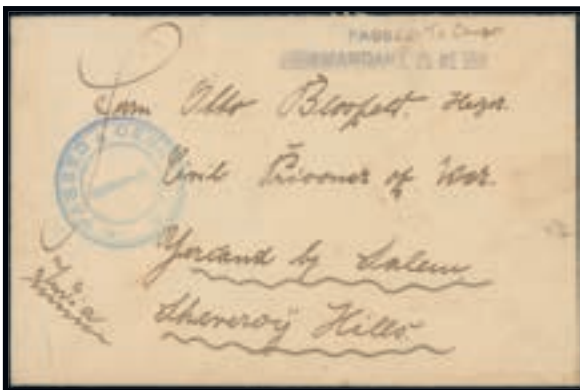 PASSED To Censor
COMMANDANT
Herrn Otto Bloofelt. Hezor.
PASSED CENSOR
Civil Prisoner of War.
Yercaud by Salem
Sheveroÿ Hills.
India